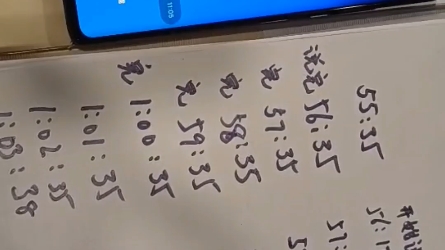 55:35
说完 56:35
完 57:35
完 58:35
完 59:35
完 1:00:35
1:01:35
1:02:35
1:03:38
56:1
57:
5